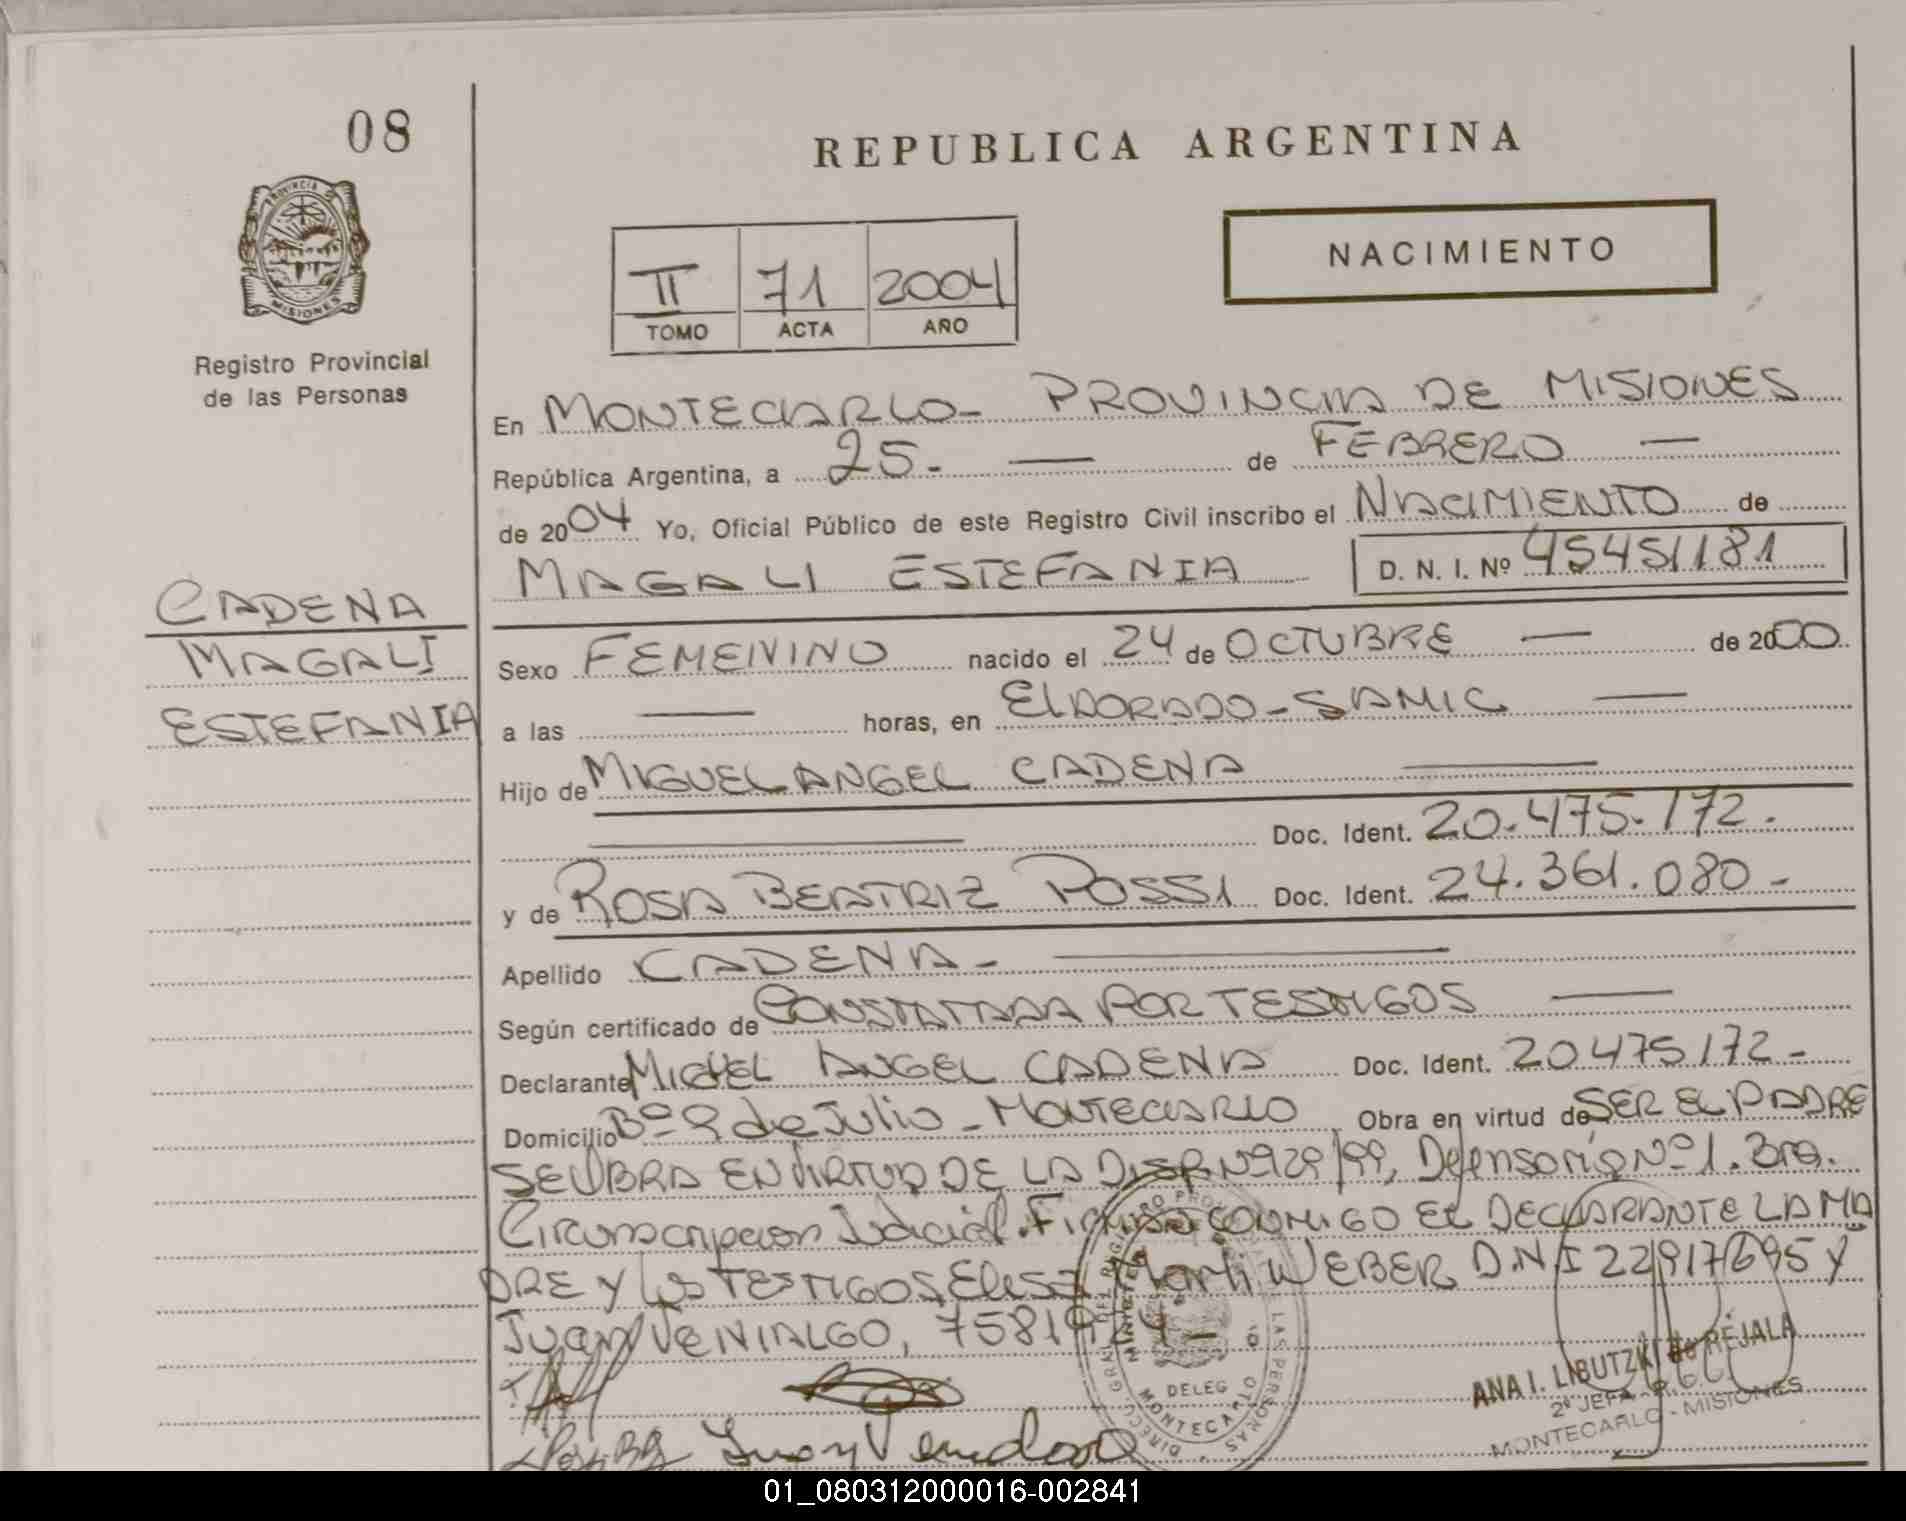 08
REPUBLICA ARGENTINA
PROVINCIA DE MISIONES
Registro Provincial
de las Personas
NACIMIENTO
II 71 2004
TOMO ACTA AÑO
En MONTECARLO - PROVINCIA DE MISIONES
República Argentina, a 25. — de FEBRERO —
de 2004 Yo, Oficial Público de este Registro Civil inscribo el NACIMIENTO de
MAGALI ESTEFANIA D. N. I. Nº 45451181
CADENA
MAGALI
ESTEFANIA
Sexo FEMENINO nacido el 24 de OCTUBRE — de 2000
a las — horas, en ELDORADO - SAMIC —
Hijo de MIGUEL ANGEL CADENA —
— Doc. Ident. 20.475.172.
y de ROSA BEATRIZ POSSI Doc. Ident. 24.361.080 -
Apellido CADENA - —
Según certificado de CONSTATADA POR TESTIGOS —
Declarante MIGUEL ANGEL CADENA Doc. Ident. 20475172 -
Domicilio Bº 9 de Julio - MONTECARLO Obra en virtud de SER EL PADRE
SE LABRA EN VIRTUD DE LA DISP Nº 929/99, Defensoría Nº 1. 3ra.
Circunscripcion Judicial. Firman CONMIGO EL DECLARANTE LA MA
DRE Y LOS TESTIGOS, Elisa Marti WEBER D.N.I 22917695 Y
Juan VENIALGO, 75819
DIRECC. GRAL. DEL REGISTRO PROVINCIAL DE LAS PERSONAS
DELEG
MONTECARLO
ANA I. LIBUTZKI de REJALA
2º JEFA
MONTECARLO - MISIONES
01_080312000016-002841